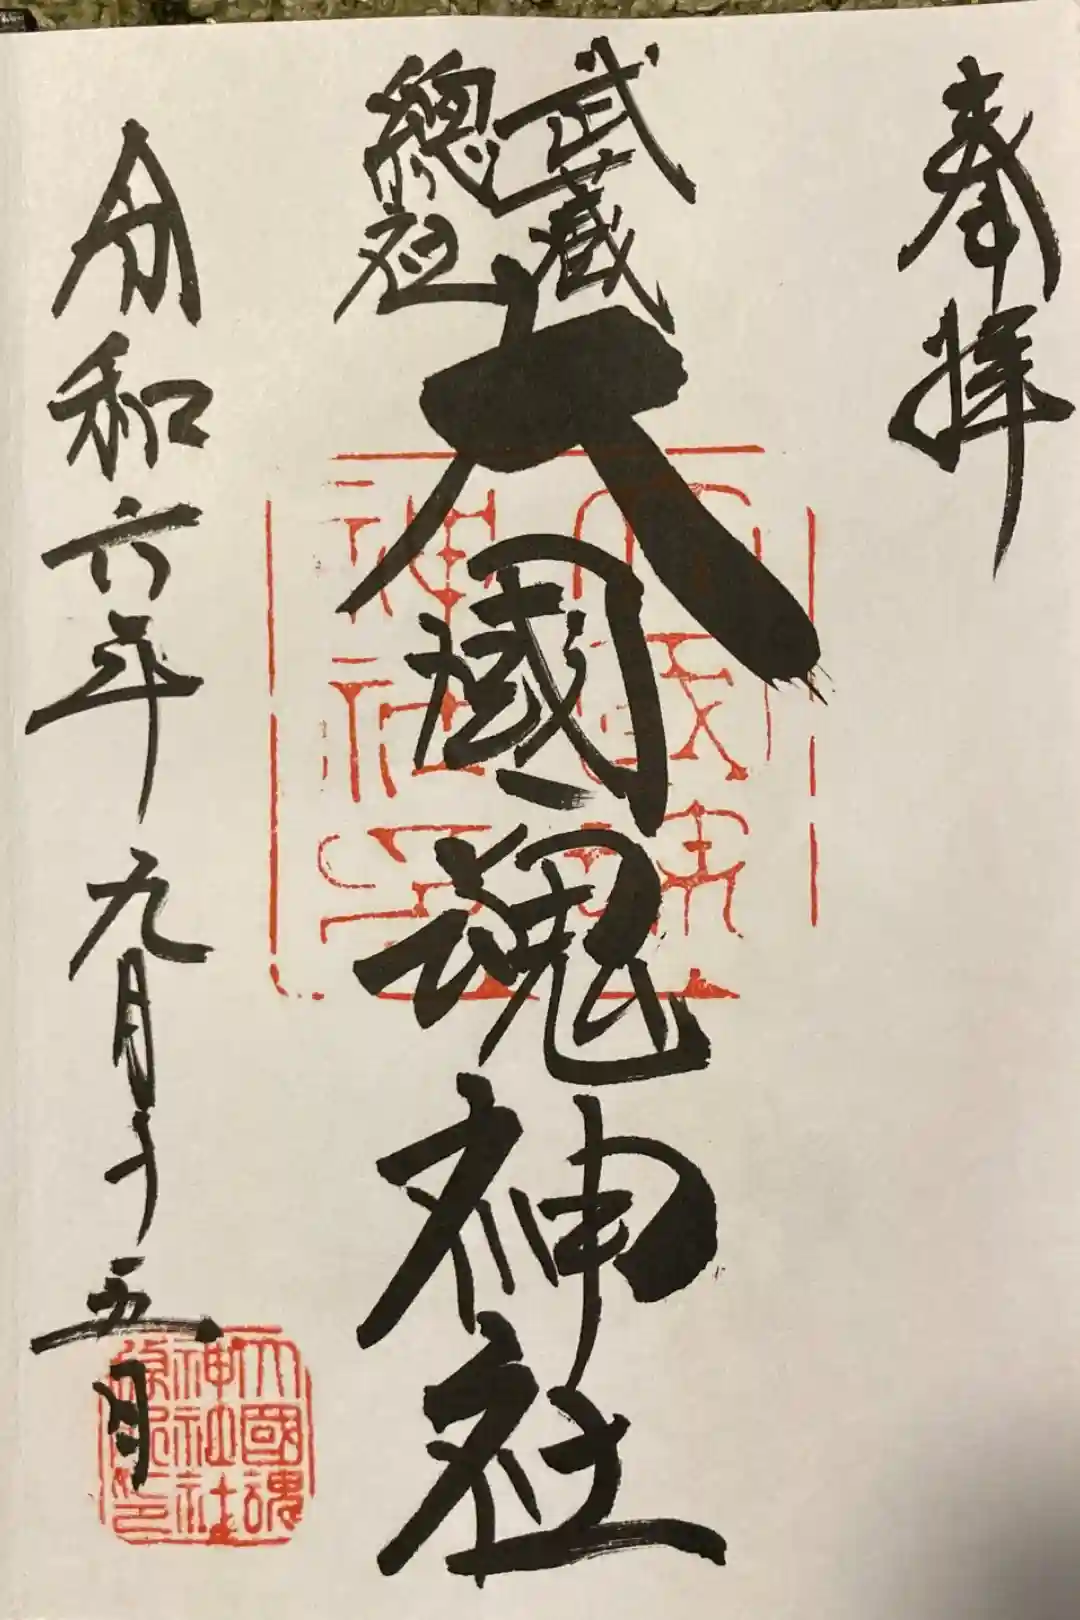 奉拝
武蔵
總社
大國魂神社
令和六年九月十五日
大國魂
神社